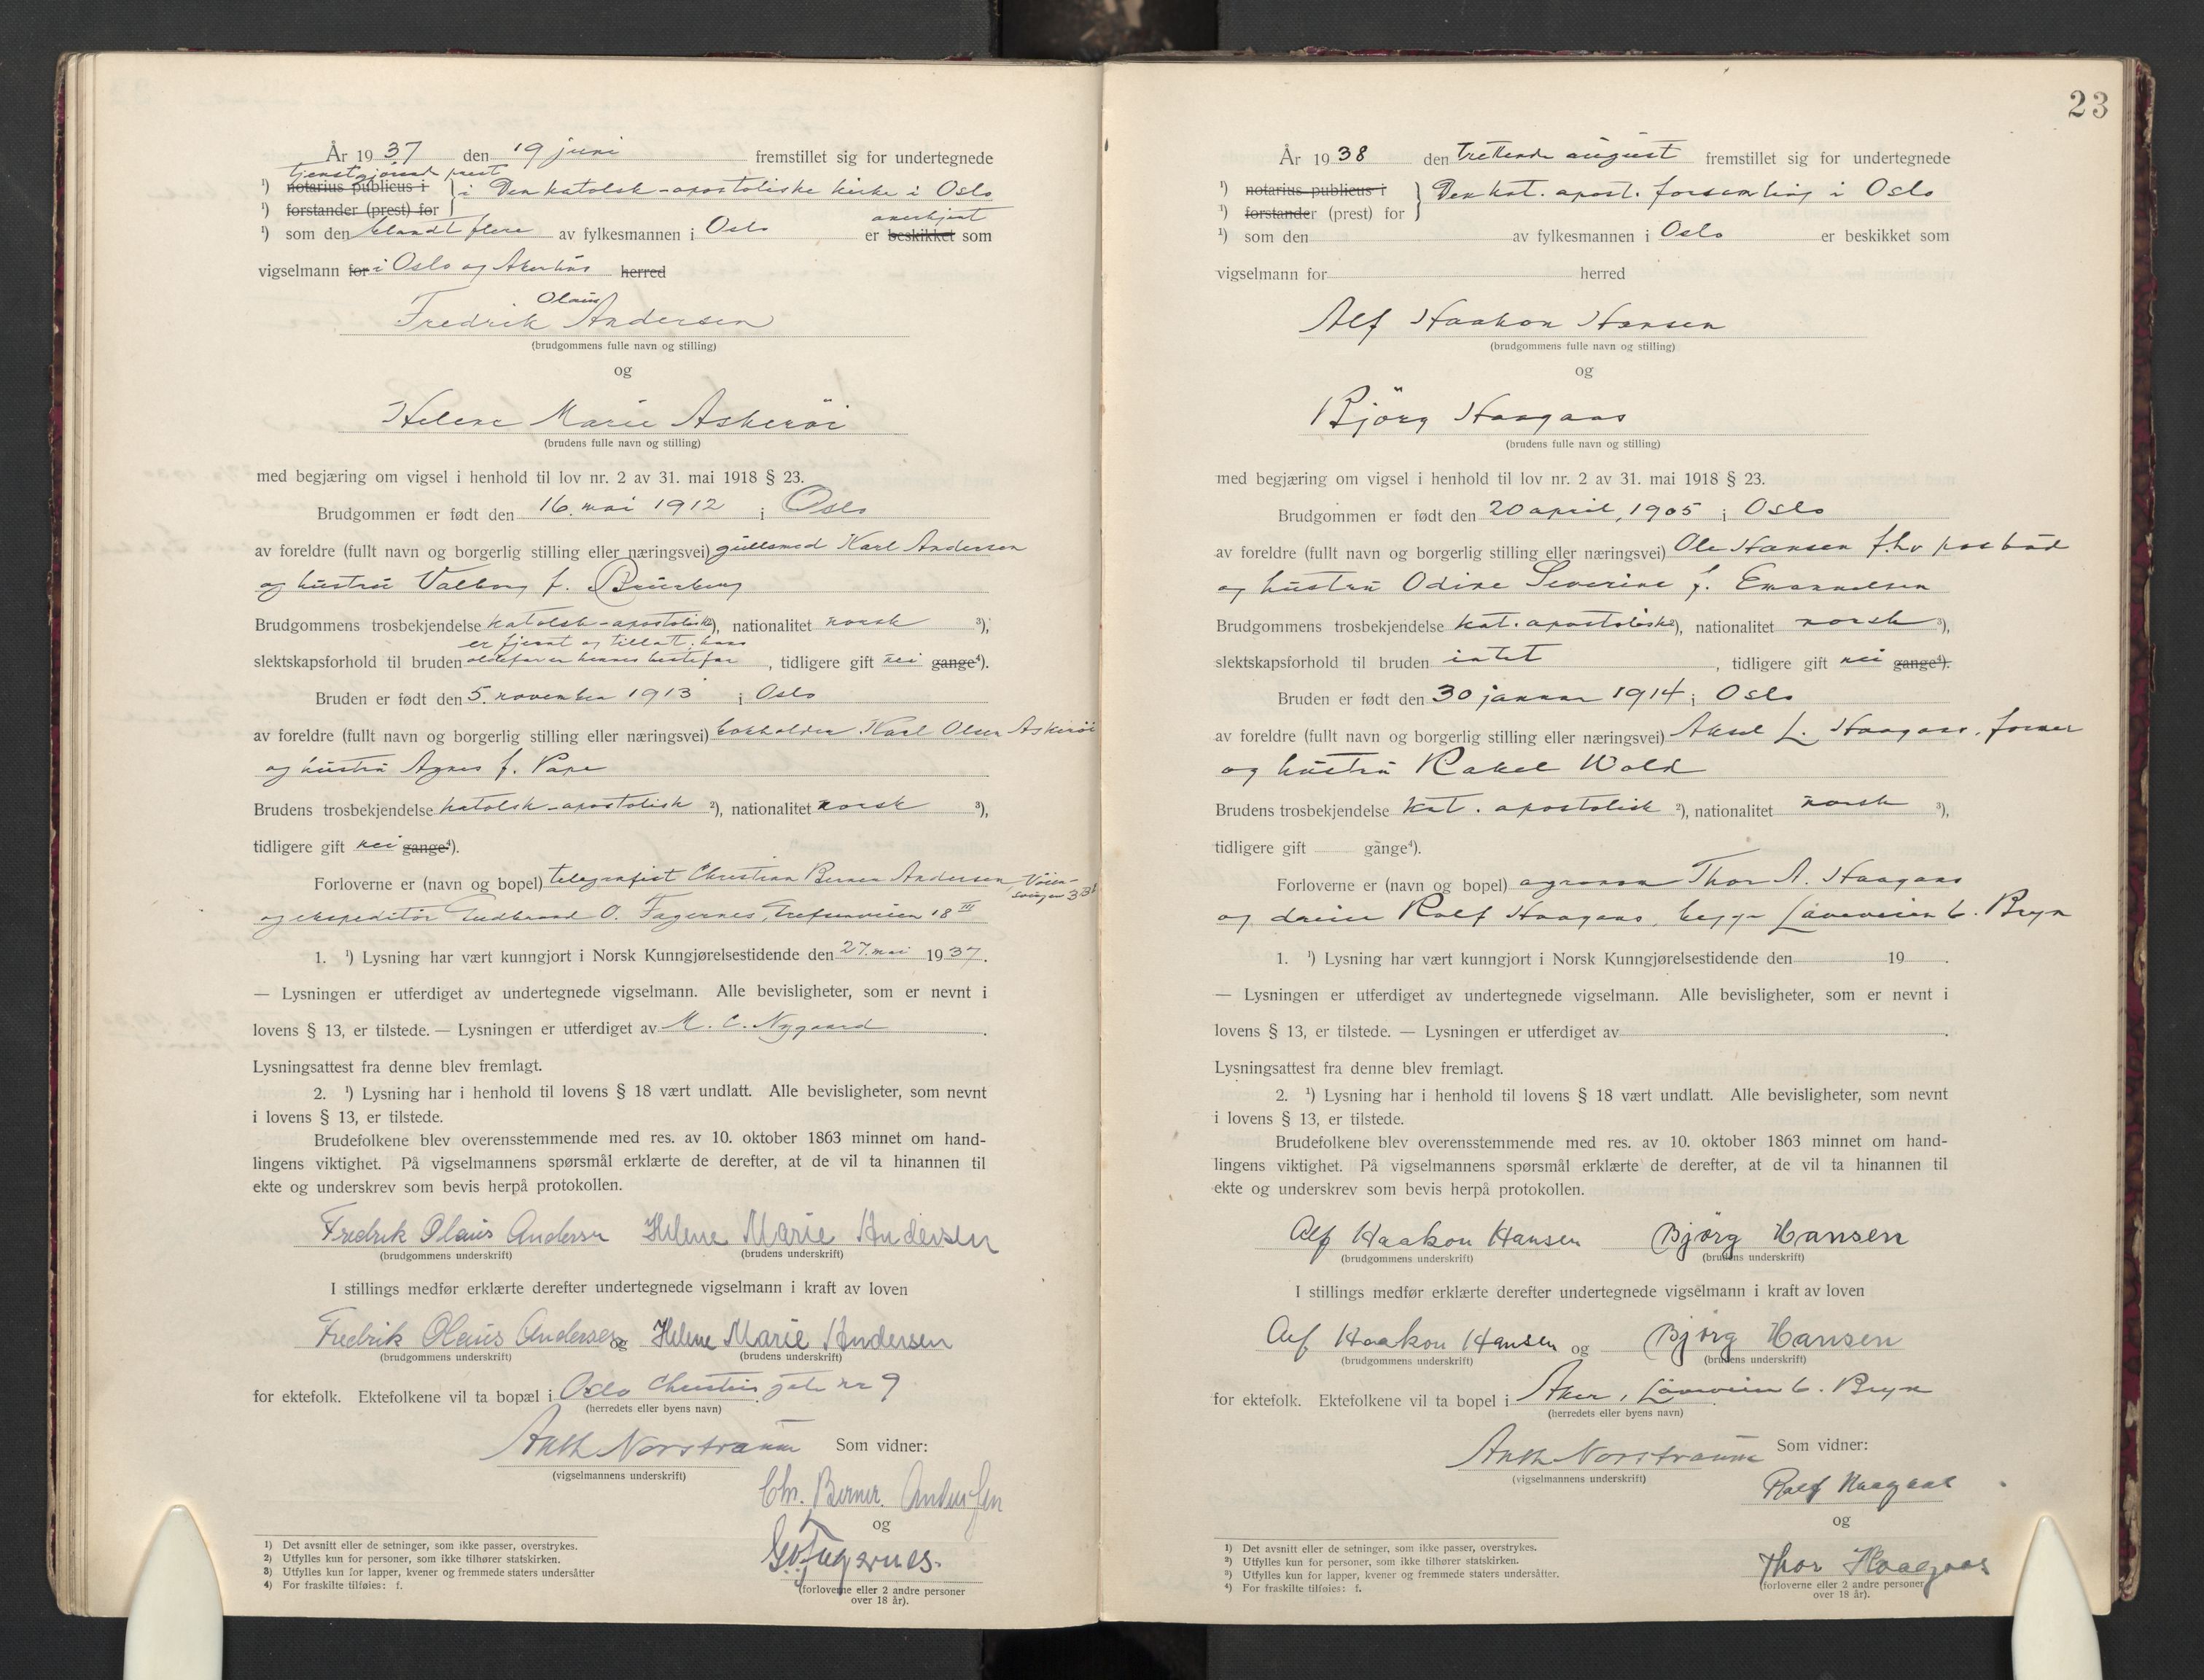 År 1937 den 19 juni fremstillet sig for undertegnede
tjenstgjørende prest
¹) notarius publicus i } i Den katolsk-apostoliske kirke i Oslo
¹) forstander (prest) for
anerkjent
¹) som den blandt flere av fylkesmannen i Oslo er beskikket som
vigselmann for i Oslo og Akershus herred
Olaus
Fredrik Andersen
(brudgommens fulle navn og stilling)
og
Helene Marie Askeröi
(brudens fulle navn og stilling)
med begjæring om vigsel i henhold til lov nr. 2 av 31. mai 1918 § 23.
Brudgommen er født den 16. mai 1912 i Oslo
av foreldre (fullt navn og borgerlig stilling eller næringsvei) gullsmed Karl Andersen
og hustru Valborg f.
Brudgommens trosbekjendelse katolsk-apostolisk ²), nationalitet norsk ³),
er fjernt og tillatt, hans
slektskapsforhold til bruden oldefar er hennes bestefar, tidligere gift nei gange⁴).
Bruden er født den 5. november 1913 i Oslo
av foreldre (fullt navn og borgerlig stilling eller næringsvei) bokholder Karl Olsen Askeröi
og hustru Agnes f. Pape
Brudens trosbekjendelse katolsk-apostolisk ²), nationalitet norsk ³),
tidligere gift nei gange⁴).
Forloverne er (navn og bopel) telegrafist Christian Berner Andersen,
og ekspeditör Gudbrand O. Fagernes, Grefsenveien 18 III
1. ¹) Lysning har vært kunngjort i Norsk Kunngjørelsestidende den 27. mai 1937.
— Lysningen er utferdiget av undertegnede vigselmann. Alle bevisligheter, som er nevnt i
lovens § 13, er tilstede. — Lysningen er utferdiget av M. C. Nygaard.
Lysningsattest fra denne blev fremlagt.
2. ¹) Lysning har i henhold til lovens § 18 vært undlatt. Alle bevisligheter, som nevnt
i lovens § 13, er tilstede.
Brudefolkene blev overensstemmende med res. av 10. oktober 1863 minnet om hand-
lingens viktighet. På vigselmannens spørsmål erklærte de derefter, at de vil ta hinannen til
ekte og underskrev som bevis herpå protokollen.
Fredrik Olaus Andersen Helene Marie Andersen
(brudgommens underskrift) (brudens underskrift)
I stillings medfør erklærte derefter undertegnede vigselmann i kraft av loven
Fredrik Olaus Andersen og Helene Marie Andersen
(brudgommens underskrift) (brudens underskrift)
for ektefolk. Ektefolkene vil ta bopæl i Oslo Christies gate nr 9
(herredets eller byens navn)
Anth Norstraüm Som vidner:
(vigselmannens underskrift)
Chr. Berner Andersen
og
G. O. Fagernes.
(forloverne eller 2 andre personer
over 18 år).
1) Det avsnitt eller de setninger, som ikke passer, overstrykes.
2) Utfylles kun for personer, som ikke tilhører statskirken.
3) Utfylles kun for lapper, kvener og fremmede staters undersåtter
4) For fraskilte tilføies: f.
23
År 1938 den trettende august fremstillet sig for undertegnede
¹) notarius publicus i } Den kat. apost. forsamling i Oslo
¹) forstander (prest) for
¹) som den av fylkesmannen i Oslo er beskikket som
vigselmann for herred
Alf Haakon Hansen
(brudgommens fulle navn og stilling)
og
Björg Haagaas
(brudens fulle navn og stilling)
med begjæring om vigsel i henhold til lov nr. 2 av 31. mai 1918 § 23.
Brudgommen er født den 20 april, 1905 i Oslo
av foreldre (fullt navn og borgerlig stilling eller næringsvei) Ole Hansen f.hv postbud
og hustru Odine Severine f. Emanuelsen
Brudgommens trosbekjendelse kat. apostolisk ²), nationalitet norsk ³),
slektskapsforhold til bruden intet, tidligere gift nei gange⁴).
Bruden er født den 30 januar 1914 i Oslo
av foreldre (fullt navn og borgerlig stilling eller næringsvei) Aksel L. Haagaas, former
og hustru Rakel Wold
Brudens trosbekjendelse kat. apostolisk ²), nationalitet norsk ³),
tidligere gift gange⁴).
Forloverne er (navn og bopel) agronom Thor A. Haagaas
og dreier Rolf Haagaas, begge Löveveien 6. Bryn
1. ¹) Lysning har vært kunngjort i Norsk Kunngjørelsestidende den 19 .
— Lysningen er utferdiget av undertegnede vigselmann. Alle bevisligheter, som er nevnt i
lovens § 13, er tilstede. — Lysningen er utferdiget av .
Lysningsattest fra denne blev fremlagt.
2. ¹) Lysning har i henhold til lovens § 18 vært undlatt. Alle bevisligheter, som nevnt
i lovens § 13, er tilstede.
Brudefolkene blev overensstemmende med res. av 10. oktober 1863 minnet om hand-
lingens viktighet. På vigselmannens spørsmål erklærte de derefter, at de vil ta hinannen til
ekte og underskrev som bevis herpå protokollen.
Alf Haakon Hansen Bjørg Hansen
(brudgommens underskrift) (brudens underskrift)
I stillings medfør erklærte derefter undertegnede vigselmann i kraft av loven
Alf Haakon Hansen og Bjørg Hansen
(brudgommens underskrift) (brudens underskrift)
for ektefolk. Ektefolkene vil ta bopel i Aker, Löveveien 6. Bryn
(herredets eller byens navn)
Anth Norstraüm Som vidner:
(vigselmannens underskrift)
Rolf Haagaas
og
Thor Haagaas
(forloverne eller 2 andre personer
over 18 år).
1) Det avsnitt eller de setninger, som ikke passer, overstrykes.
2) Utfylles kun for personer, som ikke tilhører statskirken.
3) Utfylles kun for lapper, kvener og fremmede staters undersåtter.
4) For fraskilte tilføies: f.